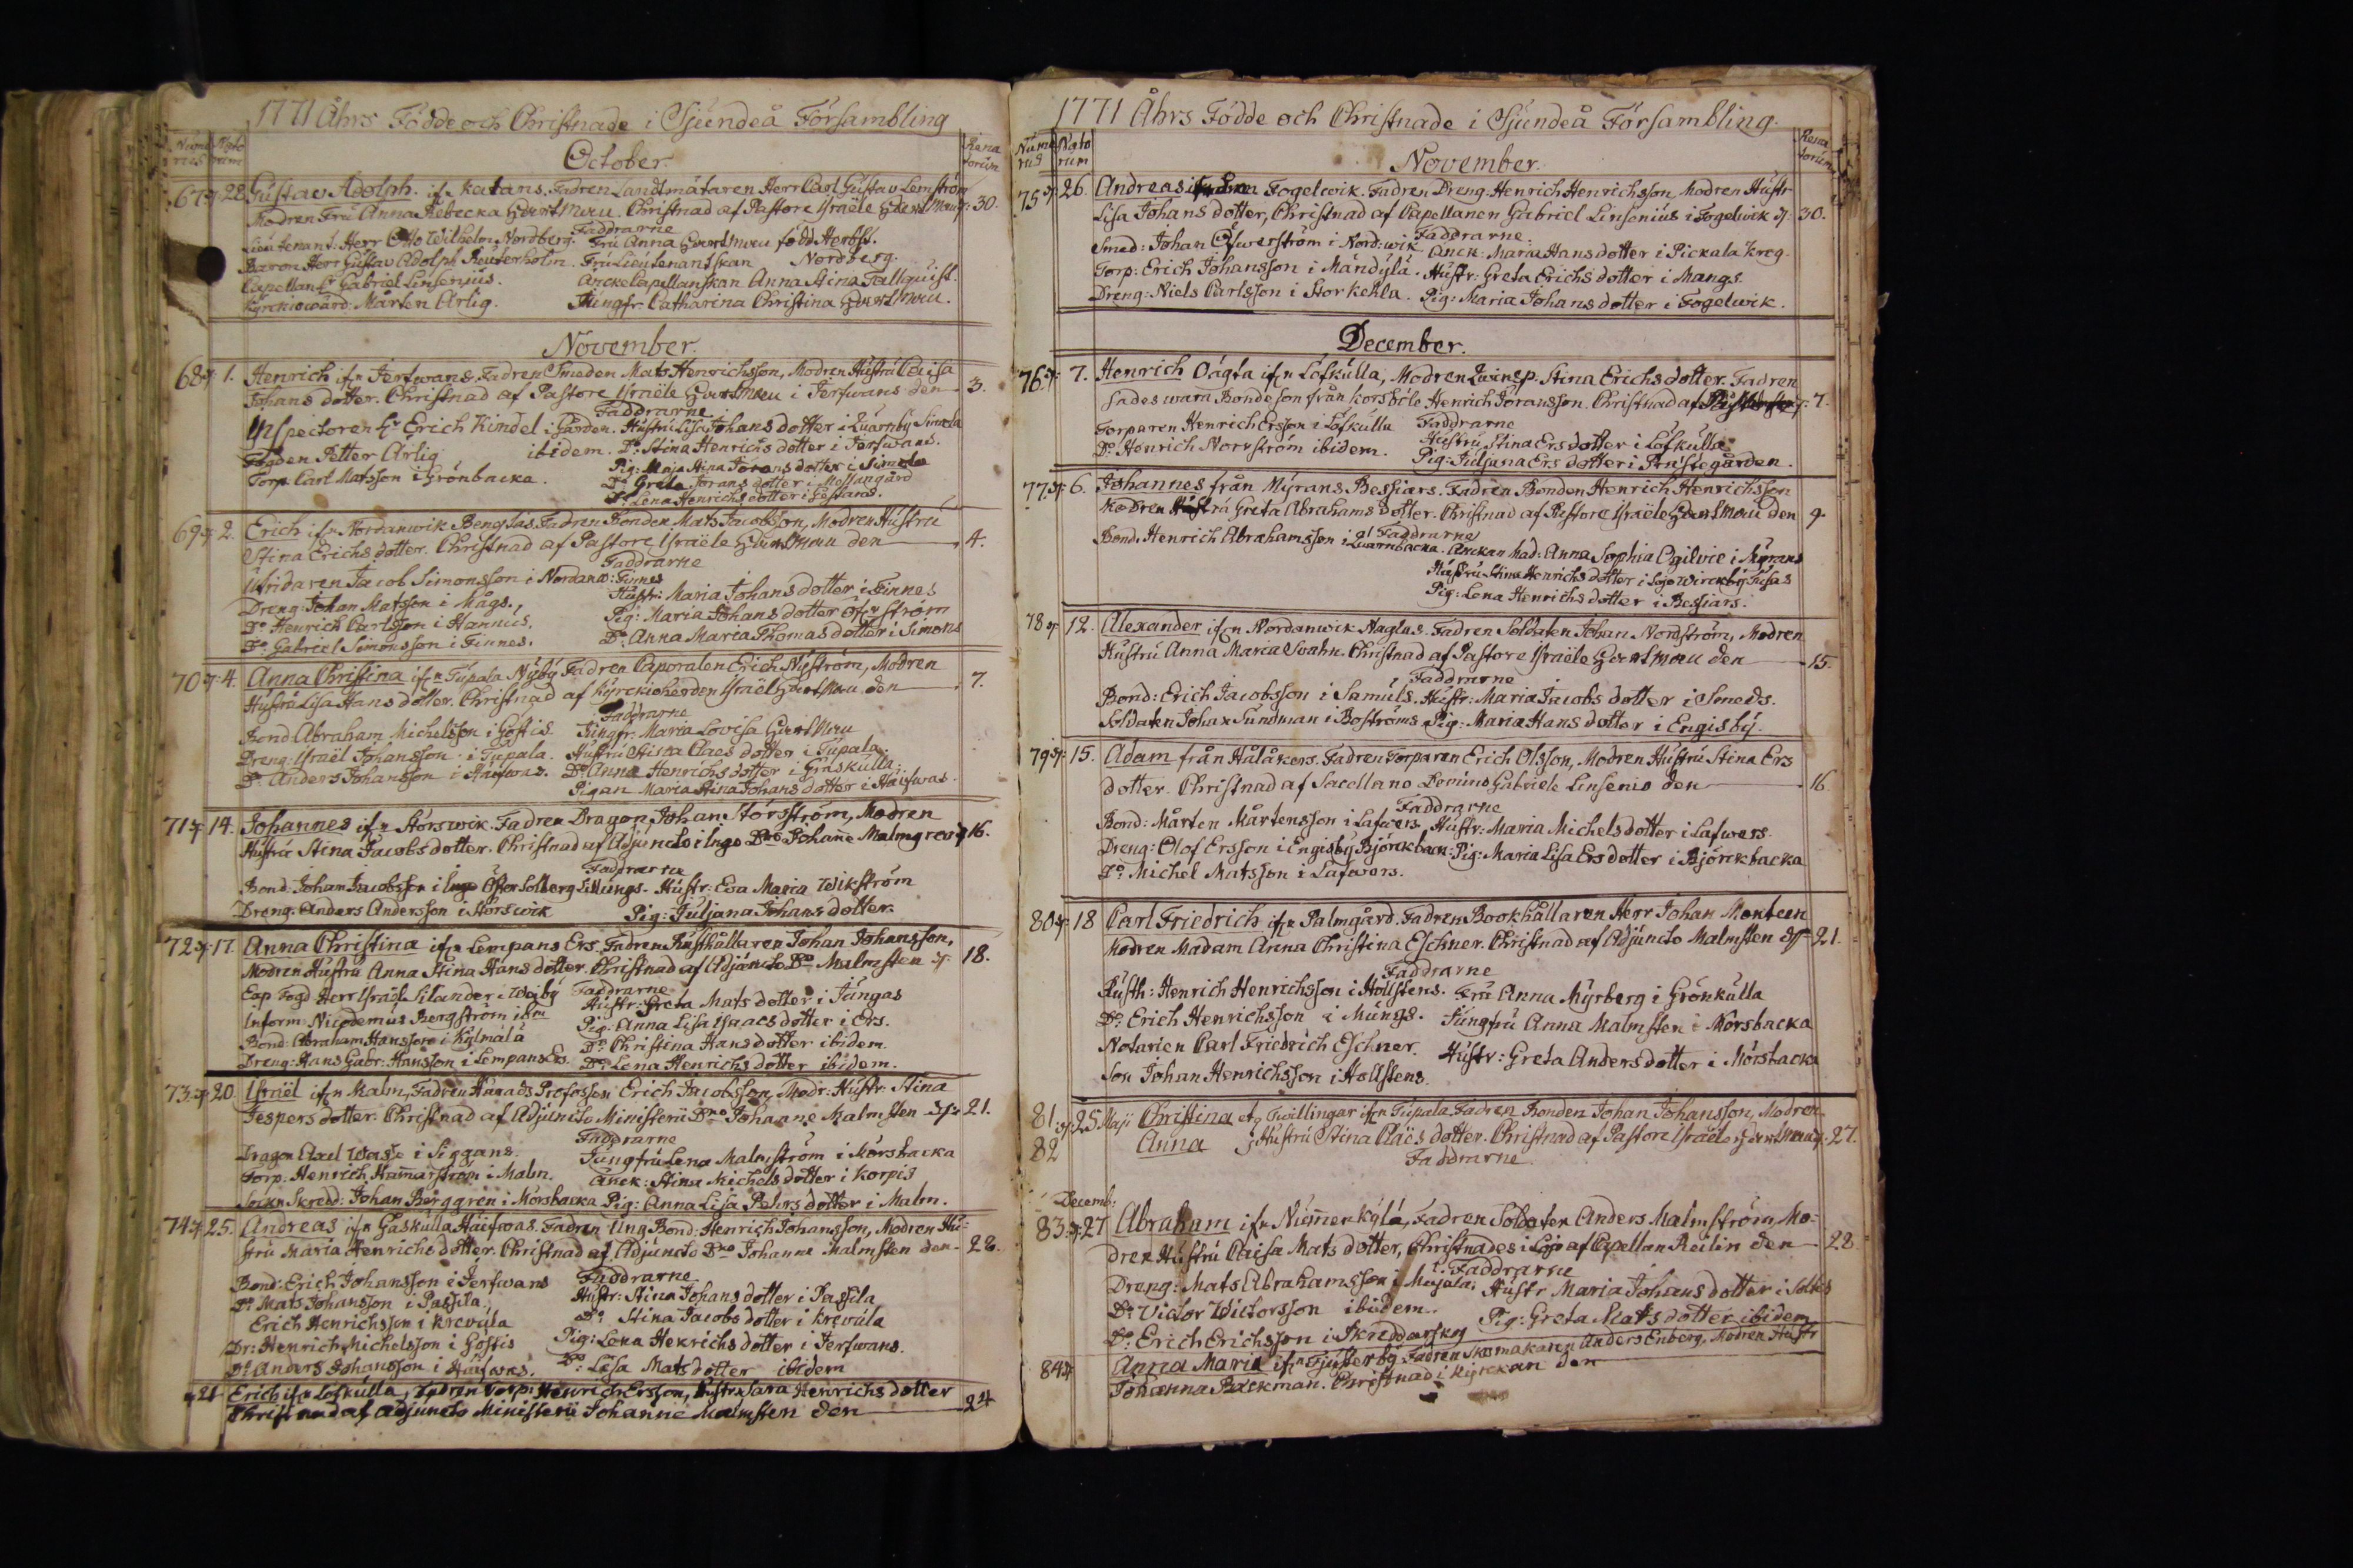 1771 Åhrs Födde och Christnade i Sjundeå Försambling
Nume rus Nato rum Rena torum
October.
67 22. Gustav Adolph ifrn Katans. Fadren Landtmätaren Herr Carl Gustav Lemström
Modren Fru Anna Rebecka. Christnad af Pastore Israële 30.
Faddrarne
Lieutenant: Herr Otto Wilhelm Nordberg. Fru Anna född Herbst.
Baron Herr Gustav Adolph Reuterholm. Fru Lieutenantskan Nordberg.
Capellan Hr Gabriel Linsenius. Anckecapellanskan Anna Stina Fallquist.
Kyrckiowärd: Mårten Ärlig. Jungfr: Catharina Christina
November.
68 1. Henrich ifrn Jerfwans. Fadren Smeden Mats Henrichsson, Modren Hustru Caisa
Johans dotter. Christnad af Pastore Israële i Jerfwans den 3.
Faddrarne
Inspectoren Hr Erich Kindel i Gården. Hustru Lisa Johans dotter i Quarnby Simola
Fogden Petter Ärlig ibidem. Do Stina Henrichs dotter i Jerfwans.
Torp: Carl Matsson i Grönbacka. Pig: Maja Stina Jörans dotter i Simola
Do Greta Jörans dotter i Mossangård
Do Lena Henrichs dotter i
69 2. Erich ifrn Nordanwik Bengtas. Fadren Bonden Mats Jacobsson, Modren Hustru
Stina Erichs dotter. Christnad af Pastore Israële den 4.
Faddrarne
Utridaren Jacob Simonsson i Nordanw: Finnes Hustr: Maria Johans dotter i Finnes
Dreng: Johan Matsson i Mågs. Pig: Maria Johans dotter ström
Do Henrich Carlsson i Hannus. Do Anna Maria Thomas dotter i Simons
Do Gabriel Simonsson i Finnes.
70 4. Anna Christina ifrn Tupala Nyby Fadren Caporalen Erich Nyström, Modren
Hustru Lisa Hans dotter. Christnad af Kyrckioherden Israël den 7.
Faddrarne
Bond Abraham Michelsson i Göstis. Jungfr: Maria Lovisa
Dreng: Israël Johansson i Tupala. Hustru Stina Claes dotter i Tupala.
Do Anders Johansson i Häifwas. Do Anna Henrichs dotter i Gräskulla.
Pigan Maria Stina Johans dotter i Häifwas.
71 14. Johannes ifrn Storswik. Fadren Dragon Johan Storsström, Modren
Hustru Stina Jacobs dotter. Christnad af Adjuncto i Ingo Dno Johanne Malmgren 16.
Faddrarne
Bond: Johan Jacobsson i Ingo Öster Solberg Sillungs. Hustr: Eva Maria Wikström
Dreng: Anders Andersson i Storswik Pig: Juljana Johans dotter.
72 17. Anna Christina ifrn Lempans Ers. Fadren Rusthållaren Johan Johansson,
Modren Hustru Anna Stina Hans dotter. Christnad af Adjuncto Dno Malmsten 18.
Faddrarne
Cap Fogd Herr Israël Silander i Wejby Hustr: Greta Mats dotter i Jängas
Inform: Nicodemus Bergström ibm Pig: Anna Lisa Isaacs dotter i Ers.
Bond: Abraham Hansson i Kylmälä Do Christina Hans dotter ibidem.
Dreng: Hans Gabr: Hansson i Lempans Ers. Do Lena Henrichs dotter ibidem.
73 20. Israël ifrn Malm, Fadren Härads Profossen Erich Jacobsson, Modr: Hustr: Stina
Jespers dotter. Christnad af Adjuncto Ministerii Dno Johanne Malmsten 21.
Faddrarne
Dragon Axel Wase i Siggans. Jungfru Lena Malmström i Morsbacka
Torp: Henrich Hamarström i Malm. Anck: Stina Michels dotter i Korpis
Sockn Skredd: Johan Berggren i Morsbacka Pig: Anna Lisa Peters dotter i Malm.
74 25. Andreas ifrn Gaskulla Häifwas. Fadren Ung Bond: Henrich Johansson, Modren Hu-
stru Maria Henrichs dotter. Christnad af Adjuncto Dno Johanne Malmsten den 28.
Faddrarne
Bond: Erich Johansson i Jerfwans Hustr: Stina Johans dotter i Passila
Do Mats Johansson i Passila, Do Stina Jacobs dotter i Krevula
Erich Henrichsson i Krevula
Dr: Henrich Michelsson i Göstis Pig: Lena Henrichs dotter i Jerfwans.
Do Anders Johansson i Häifwas. Do: Lisa Mats dotter ibidem
21 Erich ifrn Lofkulla, Fadren Torp: Henrich Ersson, hustru Sara Henrichs dotter
Christnad af adjuncto Ministerii Johanne Malmsten den 24
1771 Åhrs Födde och Christnade i Sjundeå Försambling.
Nume rus Nato rum Rena torum
November.
75 26. Andreas Fogelwik. Fadren Dreng Henrich Henrichsson Modren Hustr
Lisa Johans dotter, Christnad af Capellanen Gabriel Linsenius i Fogelwik 30.
Faddrarne.
Smed: Johan Öfwerström i Nord:wik Anck: Maria Hans dotter i Pickala Krog.
Torp: Erich Johansson i Mändylä. Hustr: Greta Erichs dotter i Mangs.
Dreng: Niels Carlsson i Storkehla. Pig: Maria Johans dotter i Fogelwik.
December.
76 7. Henrich Oägta ifrn Löfkulla, Modren Stina Erichs dotter. Fadren
sades wara Bondeson från Korsböle Henrich Jöransson. Christnad af 7.
Faddrarne
Torparen Henrich Ersson i Löfkulla Hustru Stina Ers dotter i Löfkulla
Do Henrich Norrström ibidem. Pig: Juljana Ers dotter i Prästegården.
77 6. Johannes från Myrans Bessiars. Fadren Bonden Henrich Henrichsson
Modren Hustru Greta Abrahams dotter. Christnad af Pastore Israële den 9.
Faddrarne
Bond: Henrich Abrahamsson i Quarnbacka. Anckan Mad: Anna Sophia Ogilvie i Myrans
Hustru Stina Henrichs dotter i Lojo Wirckby Jusas
Pig: Lena Henrichs dotter i Bessiars.
78 12. Alexander ifrn Nordanwik Naglas. Fadren Soldaten Johan Nordström, Modren
Hustru Anna Maria Svahn. Christnad af Pastore Israële den 15.
Faddrarne
Bond: Erich Jacobsson i Samuls. Hustr: Maria Jacobs dotter i Smeds.
Soldaten Johan Sundman i Boströms Pig: Maria Hans dotter i Engisby.
79 15. Adam från Hålåkers. Fadren Torparen Erich Olsson, Modren Hustru Stina Ers
dotter. Christnad af Sacellano Domino Gabriele Linsenio den 16.
Faddrarne
Bond: Mårten Mårtensson i Lafwers Hustr: Maria Michels dotter i Lafwers.
Dreng: Olof Ersson i Engisby Björckback: Pig: Maria Lisa Ers dotter i Björckbacka
Do Michel Matsson i Lafwers.
80 18 Carl Friedrich ifrn Palmgård. Fadren Bookhållaren Herr Johan Monteen
Modren Madam Anna Christina Eschner. Christnad af Adjuncto Malmsten 21.
Faddrarne
Rusth: Henrich Henrichsson i Hollstens. Fru Anna Myrberg i Grönkulla
Do: Erich Henrichsson i Mungs. Jungfru Anna Malmsten i Morsbacka
Notarien Carl Friedrich Eschner. Hustr: Greta Anders dotter i Morsbacka
Son Johan Henrichsson i Hollstens.
81 25 Maji Christina et Twillingar ifrn Tupala Fadren Bonden Johan Johansson, Modren
82 Anna Hustru Stina Claës dotter. Christnad af Pastore Israële 27.
Faddrarne
Decemb:
83 27 Abraham ifrn Numenkylä, Fadren Soldaten Anders Malmström, Mo-
dren Hustru Caisa Mats dotter, Christnades i Lojo af Capellan Heilin den 28.
Faddrarne
Dreng: Mats Abrahamsson i Majala: Hustr Maria Johans dotter i
Do Victor Wictorsson ibidem. Pig: Greta Mats dotter ibidem
Do: Erich Erichsson i Skreddarskog
84 Anna Maria ifrn Tjusterby Fadren Skomakaren Anders Enberg, Modren Hustr
Johanna Bäckman. Christnad i Kyrckan den